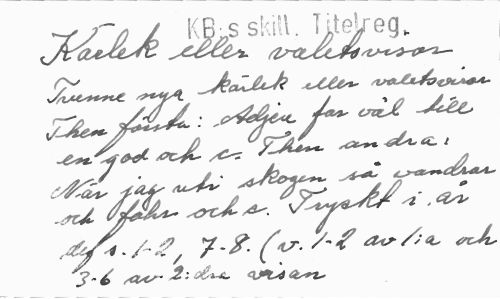 KB:s skill. Titelreg.
Kärlek eller valetsvisor
Tvenne nya kärlek eller valetsvisor
Then första: Adjeu far väl till
en god och c. Then andra:
När jag uti skogen så vandrar
och fåhr och c. Tryskt i år
def s. 1-2, 7-8. (v. 1-2 av 1:a och
3-6 av 2:dra visan